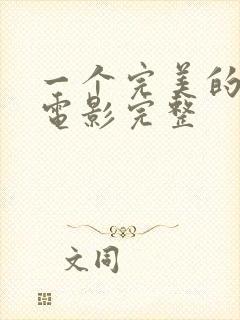 一个完美的
电影完整
文同